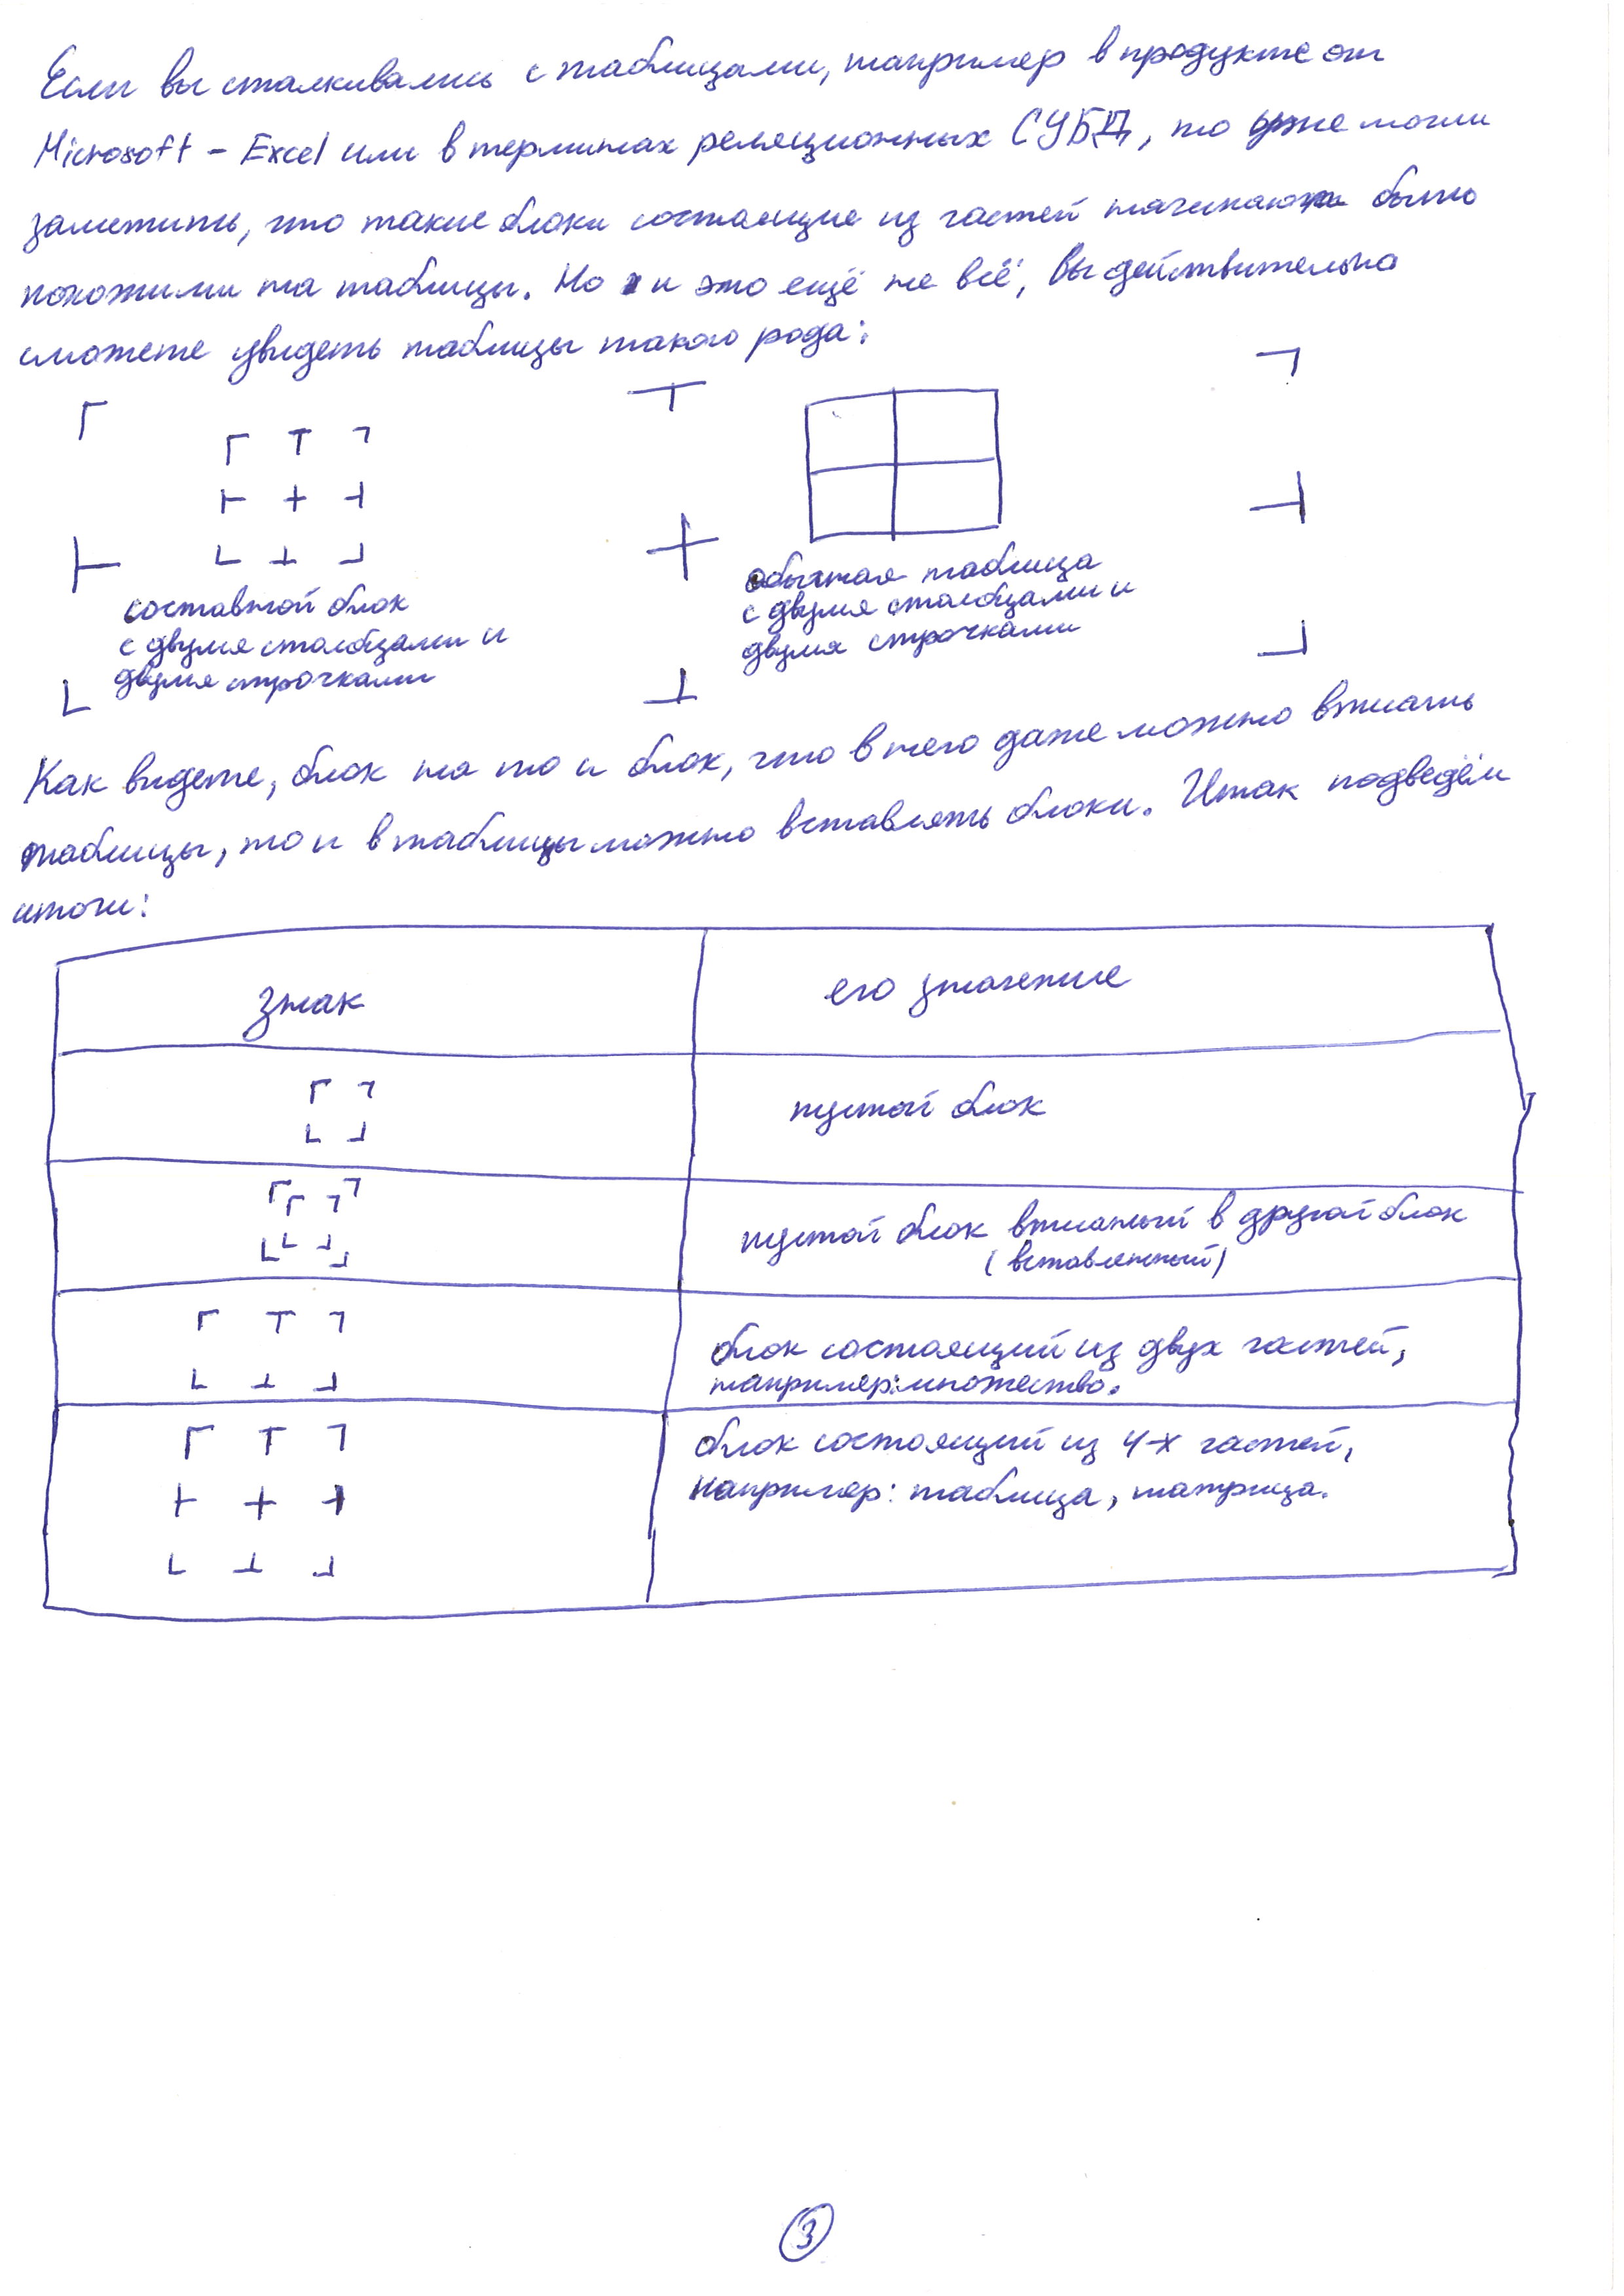 Если вы сталкивались с таблицами, например в продукте от
Microsoft - Excel или в терминах реляционных СУБД, то уже могли
заметить, что такие блоки состоящие из частей начинают было
похожими на таблицы. Но и это ещё не всё, Вы действительно
сможете увидеть таблицы такого рода:
составной блок
с двумя столбцами и
двумя строчками
обычная таблица
с двумя столбцами и
двумя строчками
Как видете, блок на то и блок, что в него даже можно впихать
таблицы, то и в таблицы можно вставлять блоки. Итак подведём
итоги:
знак
его значение
пустой блок
пустой блок впиханый в другой блок
(вставленный)
блок состоящий из двух частей,
например: множество.
блок состоящий из 4-х частей,
например: таблица, матрица.
3